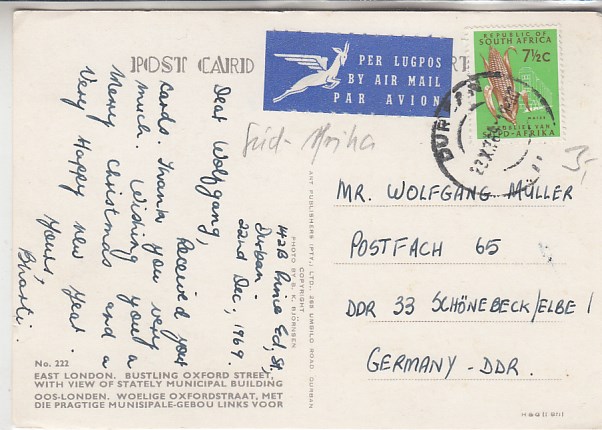 POST CARD
PER LUGPOS
BY AIR MAIL
PAR AVION
REPUBLIC OF
SOUTH AFRICA
7½c
MAIZE
REPUBLIEK VAN
SUID-AFRIKA
DURBAN
Süd-Afrika
142B Prince Ed. St,
Durban -
22nd Dec, 1969.
Dear Wolfgang,
Received your
cards. Thank you very
much. Wishing you a
Merry Christmas and a
Very Happy new Year.
Yours
Bharti.
MR. WOLFGANG MÜLLER
POSTFACH 65
DDR 33 SCHÖNEBECK/ELBE 1
GERMANY - DDR.
ART PUBLISHERS (PTY.) LTD., 285 UMBILO ROAD, DURBAN
COPYRIGHT
PHOTO BY S. K. BJÖRNSEN
No. 222
EAST LONDON. BUSTLING OXFORD STREET,
WITH VIEW OF STATELY MUNICIPAL BUILDING
OOS-LONDEN. WOELIGE OXFORDSTRAAT, MET
DIE PRAGTIGE MUNISIPALE-GEBOU LINKS VOOR